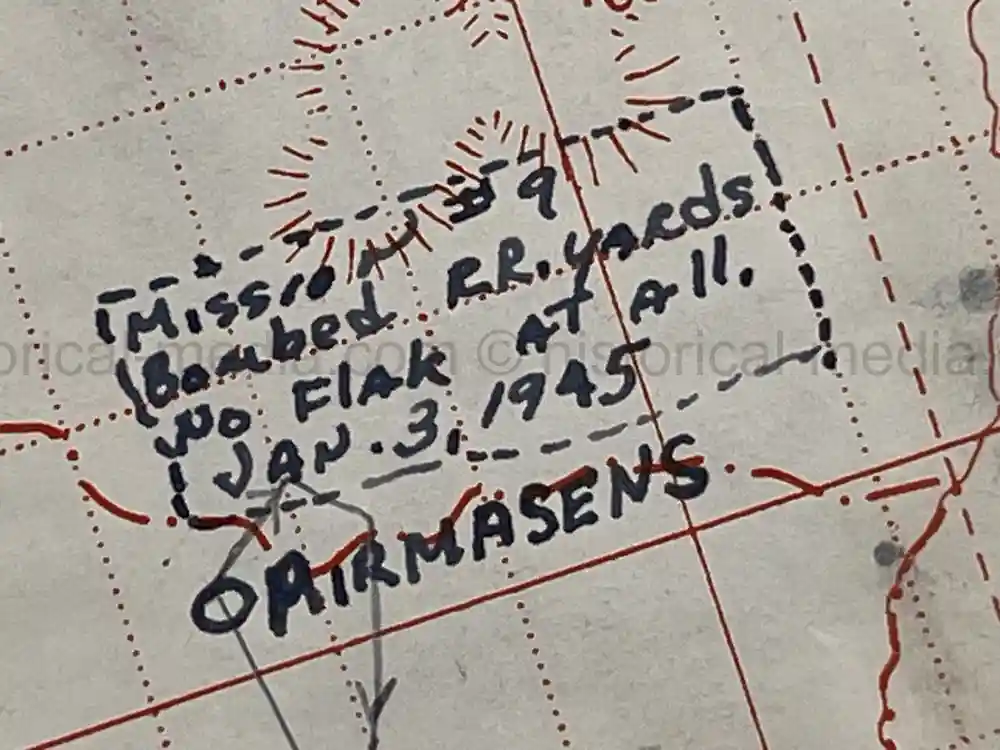 Mission # 9
Bombed RR. YARDS
No FlAK AT All.
JAN. 3, 1945
PIRMASENS
orical-media.com © historical-media